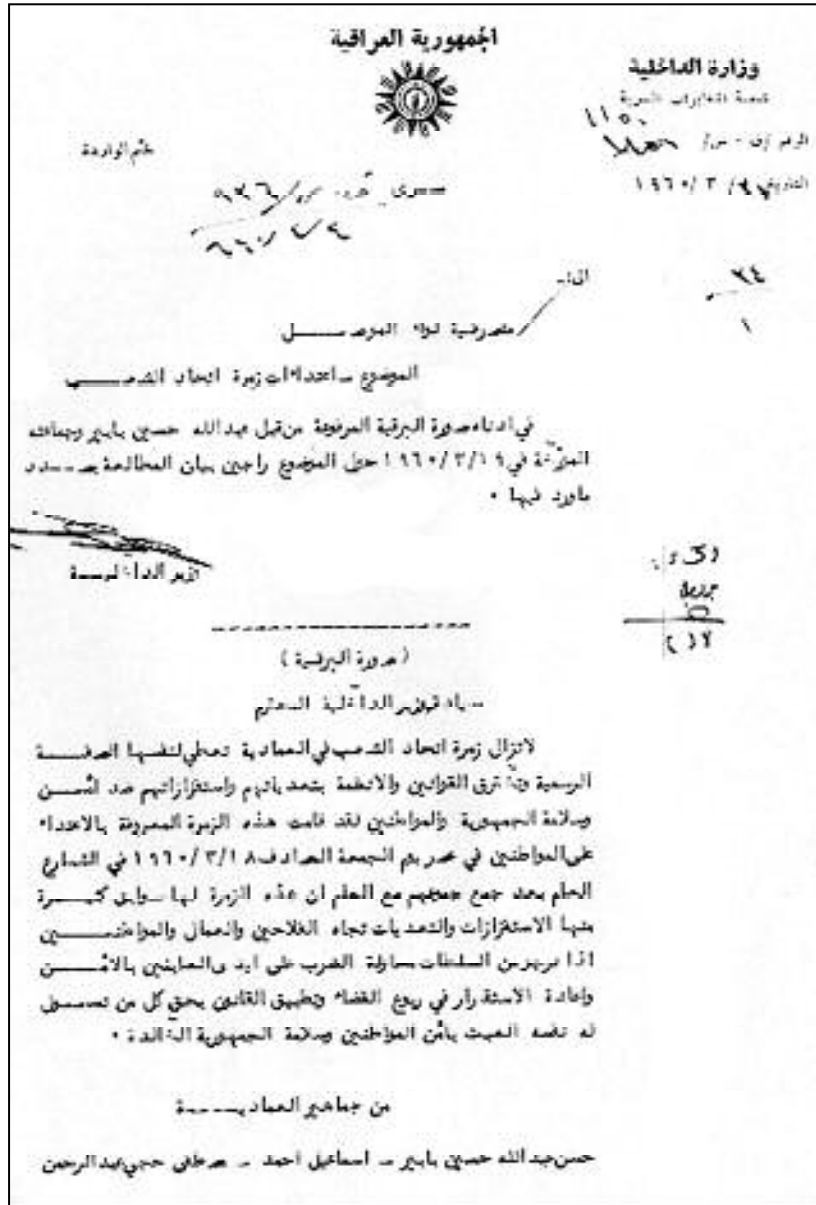 الجمهورية العراقية
وزارة الداخلية
شعبة المخابرات السرية
الرقم /ق - س/
التاريخ / ٣ / ١٩٦٠
ختم الواردة
ســرى
٩٣٦
الى:ـ
متصرفية لواء الموصـــــل
الموضوع ـ اعتداءات زمرة اتحاد الشعــــب
في ادناه صورة البرقية المرفوعة من قبل عبدالله حسين بابير وجماعته
المؤرخة في ١٩٦٠/٣/١٩ حول الموضوع راجين بيان المطالعة بصــدد
ماورد فيها ٠
وزير الداخليــة
( صورة البرقية )
سيادة وزير الداخلية المحترم
لاتزال زمرة اتحاد الشعب في العمادية تعطي لنفسها الصفــة
الرسمية وتخترق القوانين والانظمة بتعدياتهم واستفزازاتهم ضد أمــن
وسلامة الجمهورية والمواطنين لقد قامت هذه الزمرة المعروفة بالاعتداء
على المواطنين في عصر يوم الجمعة المصادف ١٩٦٠/٣/١٨ في الشارع
العام بعد جمع جمعهم مع العلم ان هذه الزمرة لها سوابق كثيــرة
منها الاستفزازات والتعديات تجاه الفلاحين والعمال والمواطنـــين
لذا نرجو من السلطات الضرب على ايدى العابثين بالأمــن
واعادة الاستقرار في ربوع القضاء وتطبيق القانون بحق كل من تســول
له نفسه العبث بأمن المواطنين وسلامة الجمهورية الخالدة ٠
من جماهير العماديــــة
حسن عبدالله حسين بابير ـ اسماعيل احمد ـ مصطفى حجي عبدالرحمن